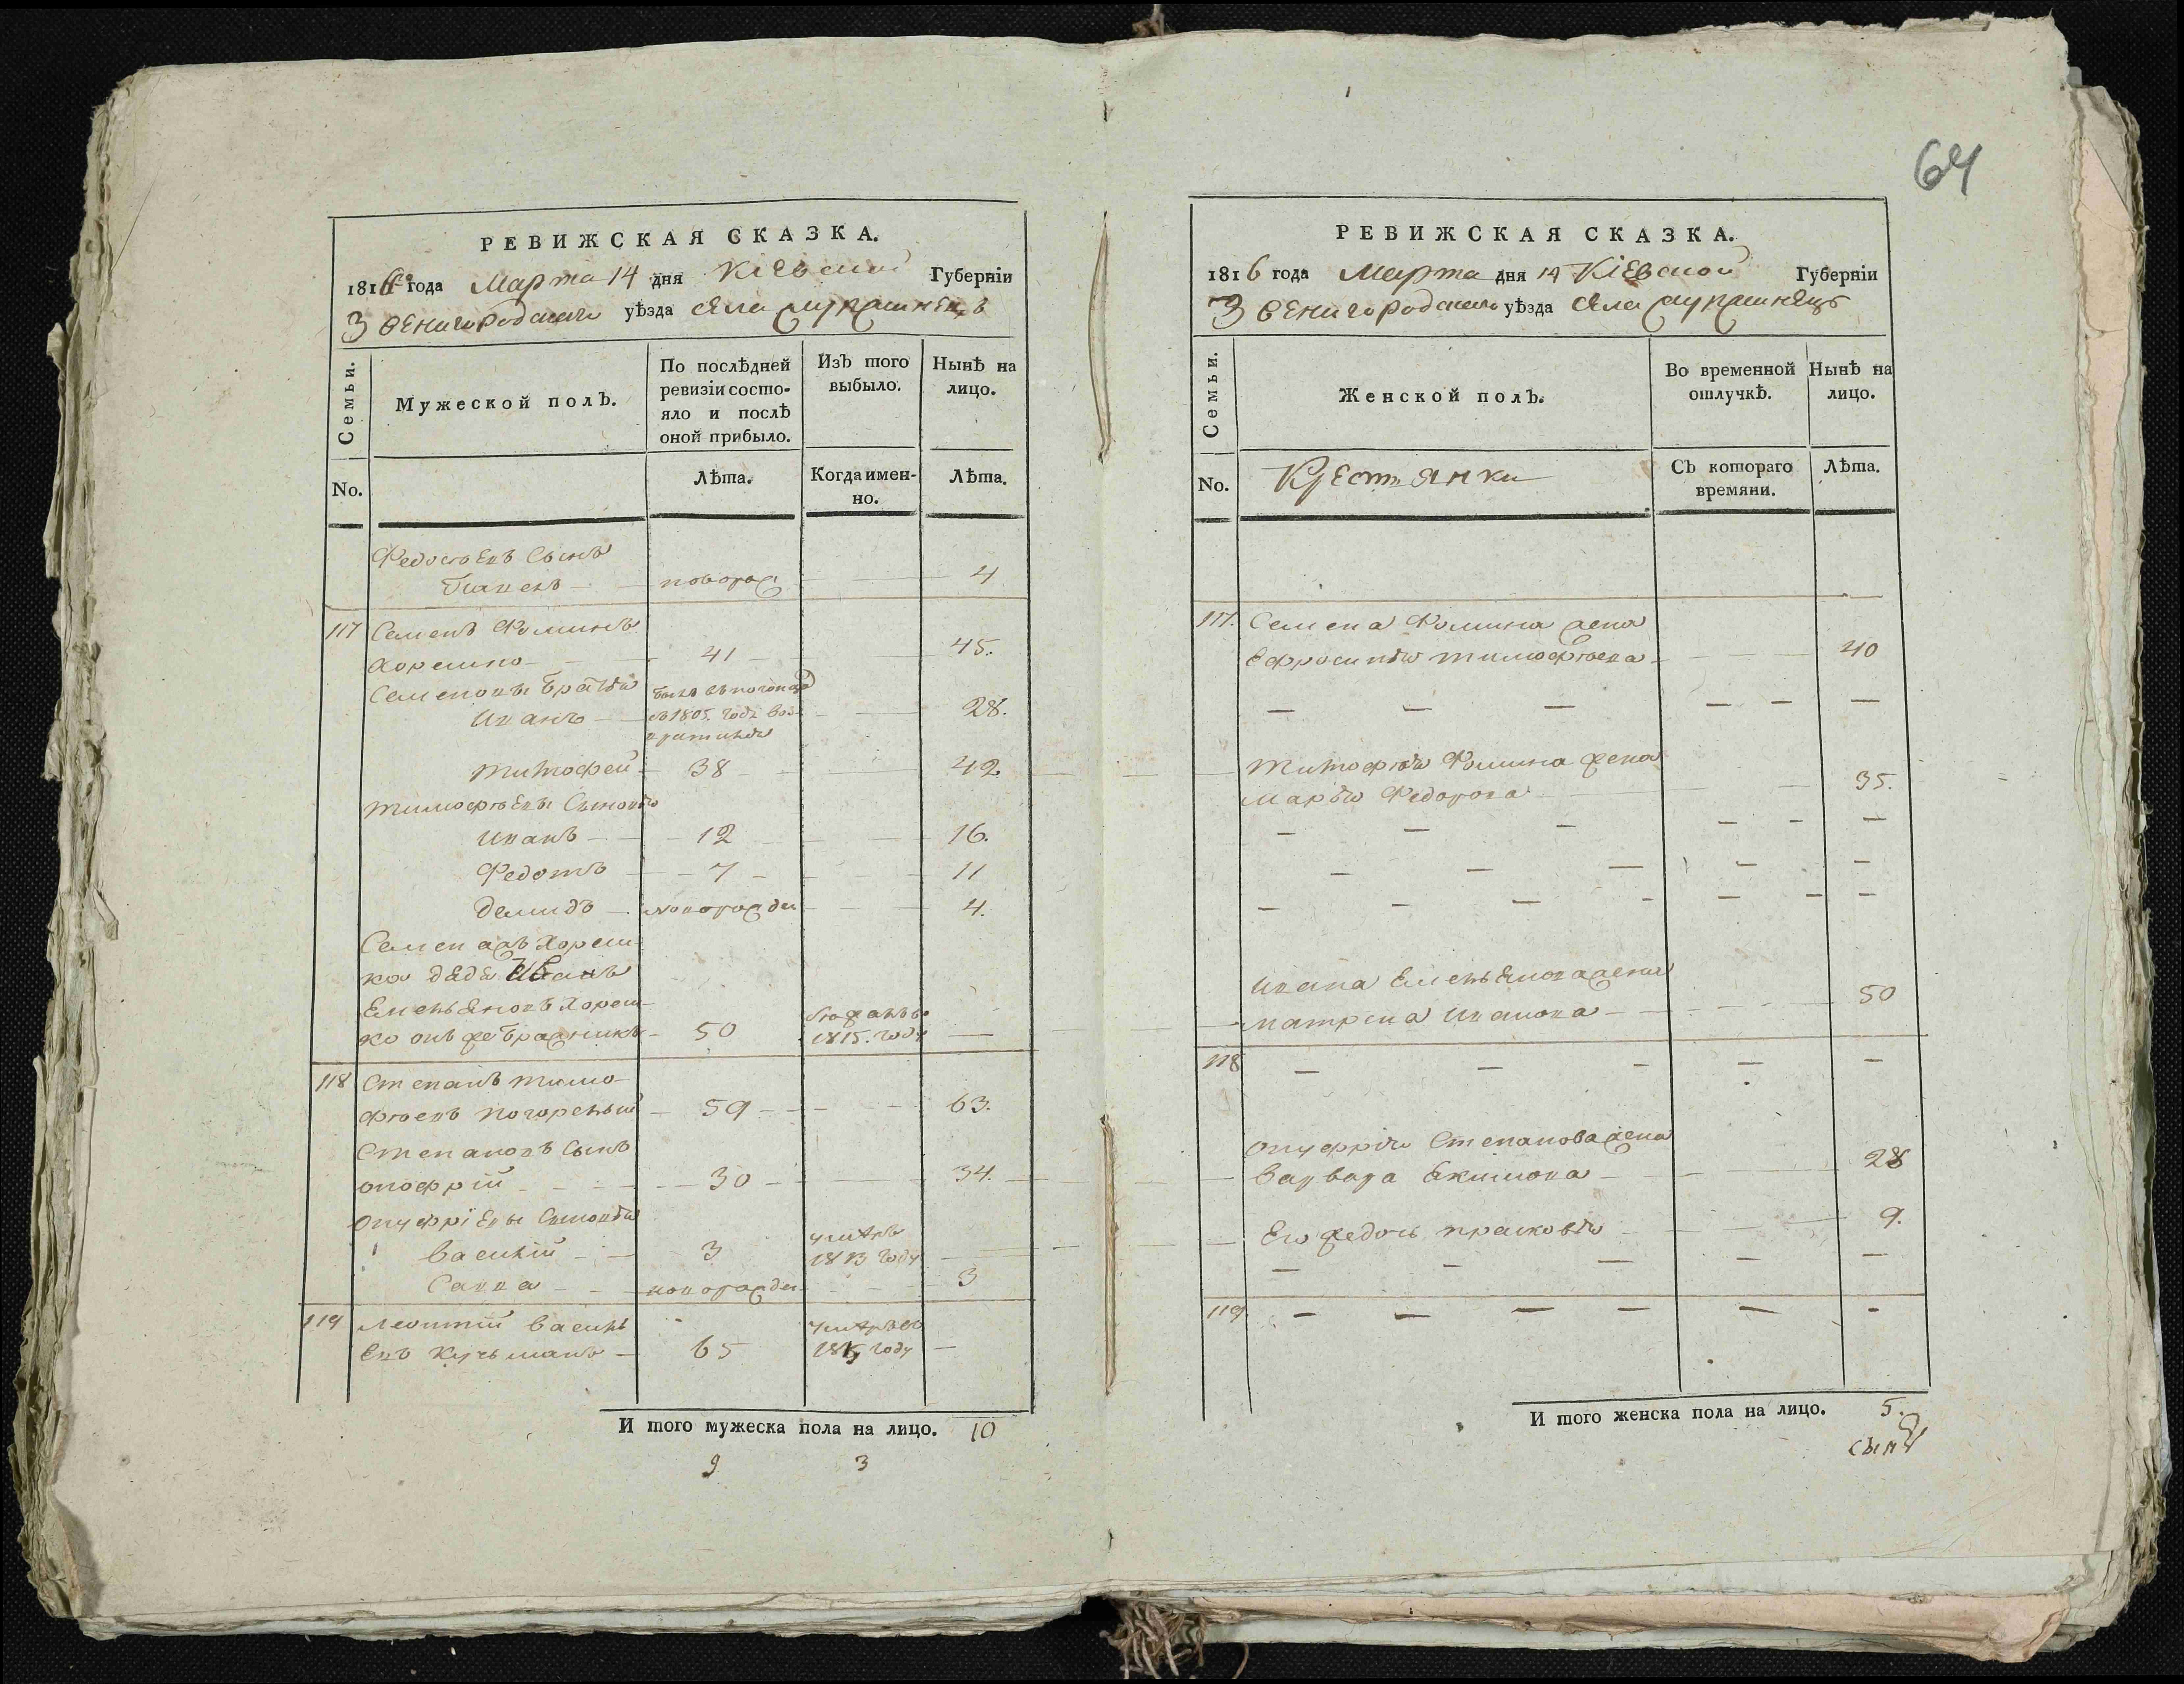 64
РЕВИЖСКАЯ СКАЗКА.
1816 года Марта 14 дня Кіевской Губерніи
Звенигородского уѣзда села
Семьи.
Мужеской полЪ.
По послѣдней ревизіи состо-
яло и послѣ оной прибыло.
ИзЪ того выбыло.
НынѢ на лицо.
No.
Лѣта.
Когда имен-
но.
Лѣта.
сынъ
новорож 4
117 Семенъ Фоминъ
Хорешко 41 45.
Семеновы братья
Иванъ в 1805. годе 28.
Тимофей 38 42
Тимофѣевы Сыновья
Иванъ 12 16.
Федотъ 7 11
Демидъ новорожден 4.
Хореш-
ка дядя Иванъ
Емельяновъ Хореш-
ко онъ же бражникъ 50 1815. году —
118 Степанъ Тимо-
фѣевъ Погорелый 59 63.
Степановъ Сынъ
Онофрій 30 34.
Онуфріевы Сыновья
Василій 3 умлръ 1813 году
Савва новорожден 3
119 Леонтій Василь
евъ Кучьманъ 65 году —
И того мужеска пола на лицо. 10
9 3
РЕВИЖСКАЯ СКАЗКА.
1816 года Марта дня 14 Кіевской Губерніи
Звенигородского уѣзда села
Семьи.
Женской полЪ.
Во временной
отлучкѢ.
НынѢ на
лицо.
No.
Крестянки
СЪ котораго
времяни.
Лѣта.
117. Семена Фомина жена
Ефросинья Тимофѣева 40
Тимофѣя Фомина жена
Марья Федорова 35.
Ивана Емельянова жена
Матрена Иванова 50
118
Онуфрія Степанова жена
Варвара Екимова 28
Его же дочь Прасковья 9.
119
И того женска пола на лицо. 5.